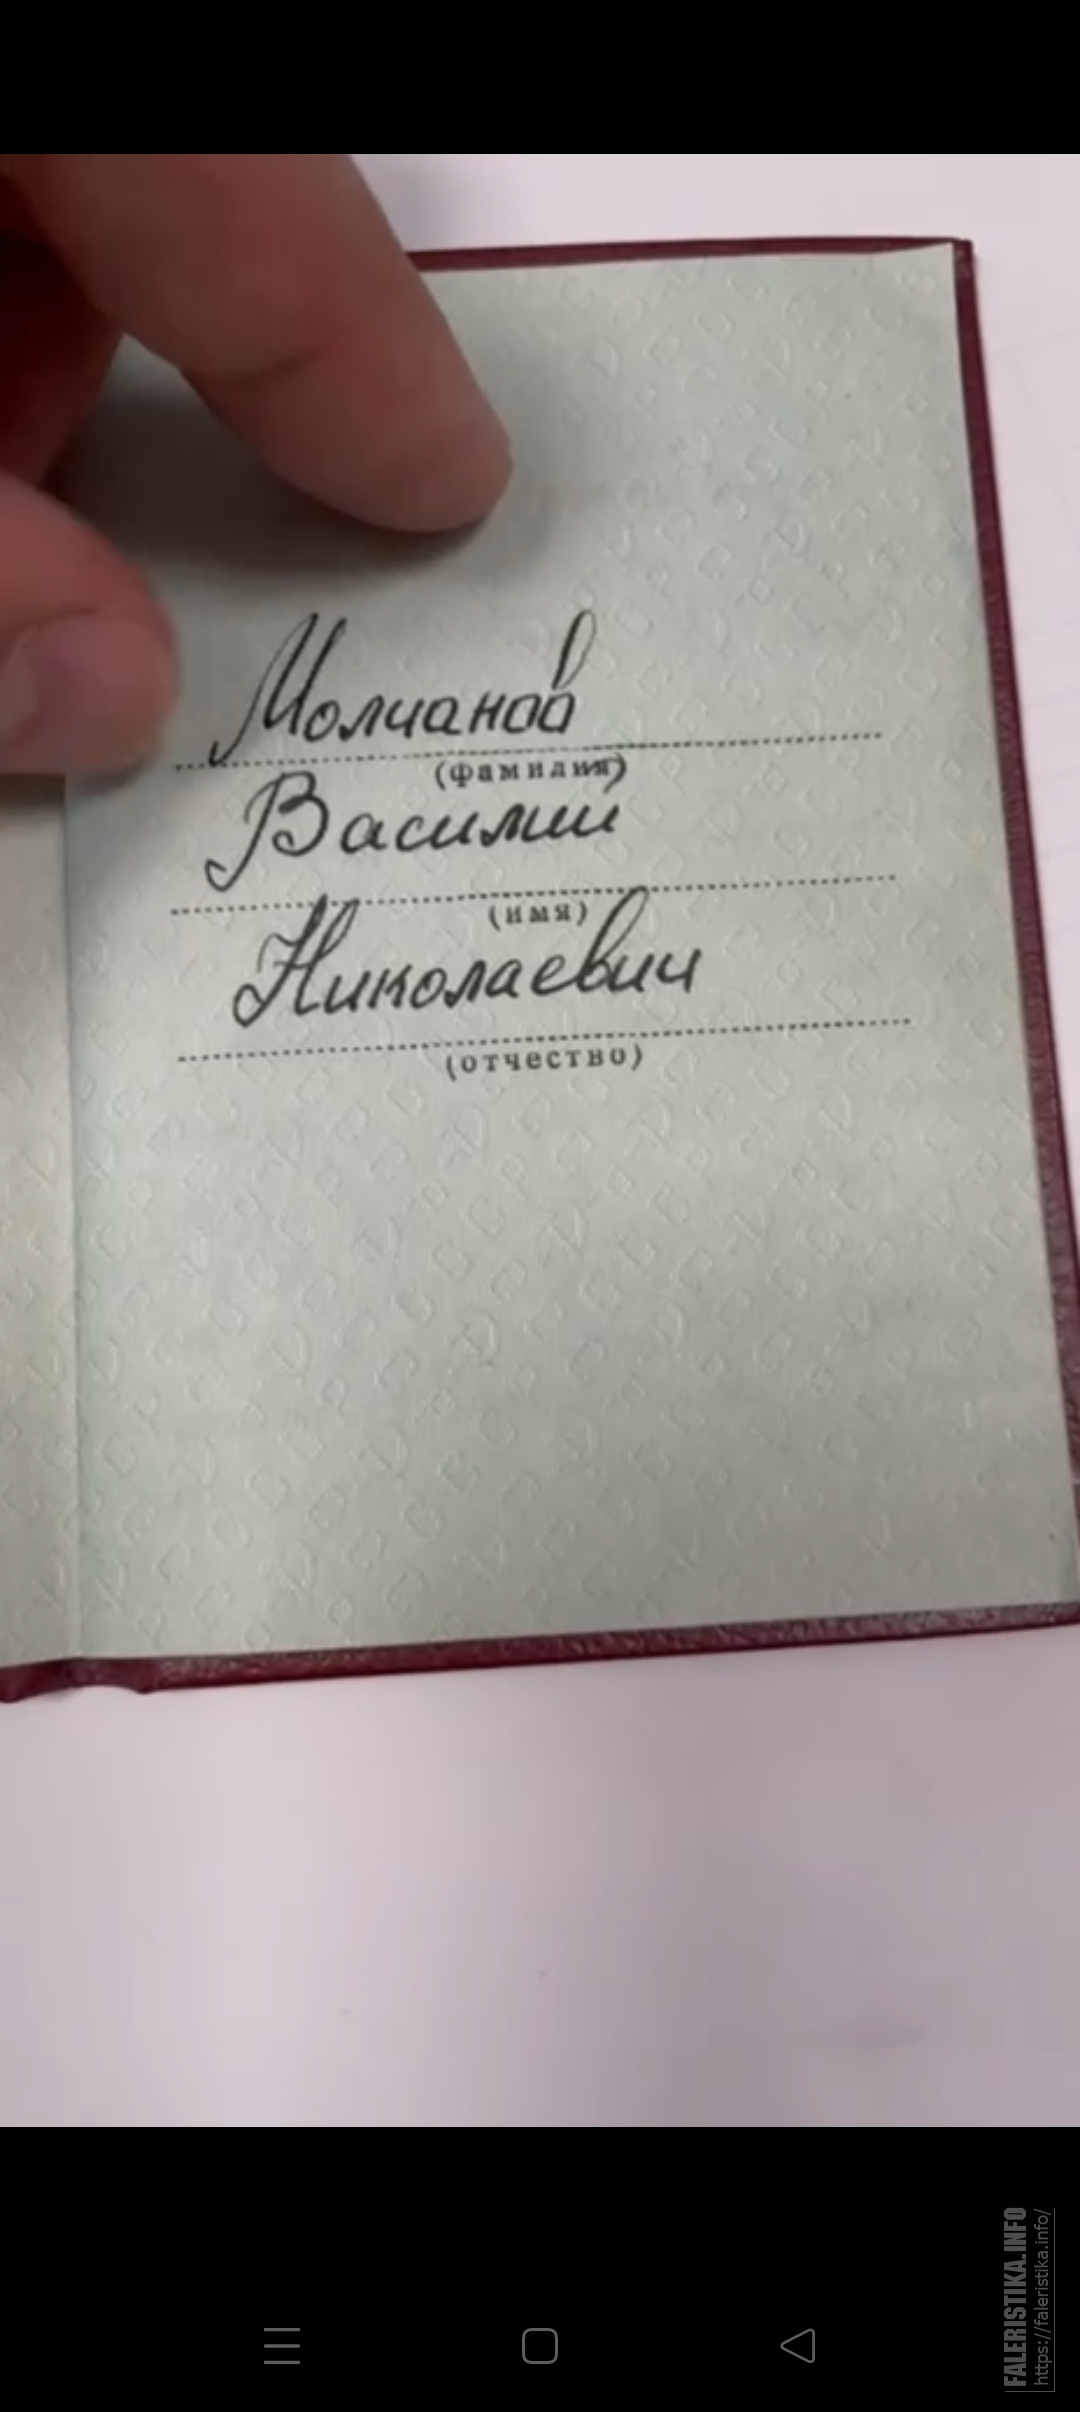 Молчанов
(фамилия)
Василий
(имя)
Николаевич
(отчество)
FALERISTIKA.INFO
https://faleristika.info/